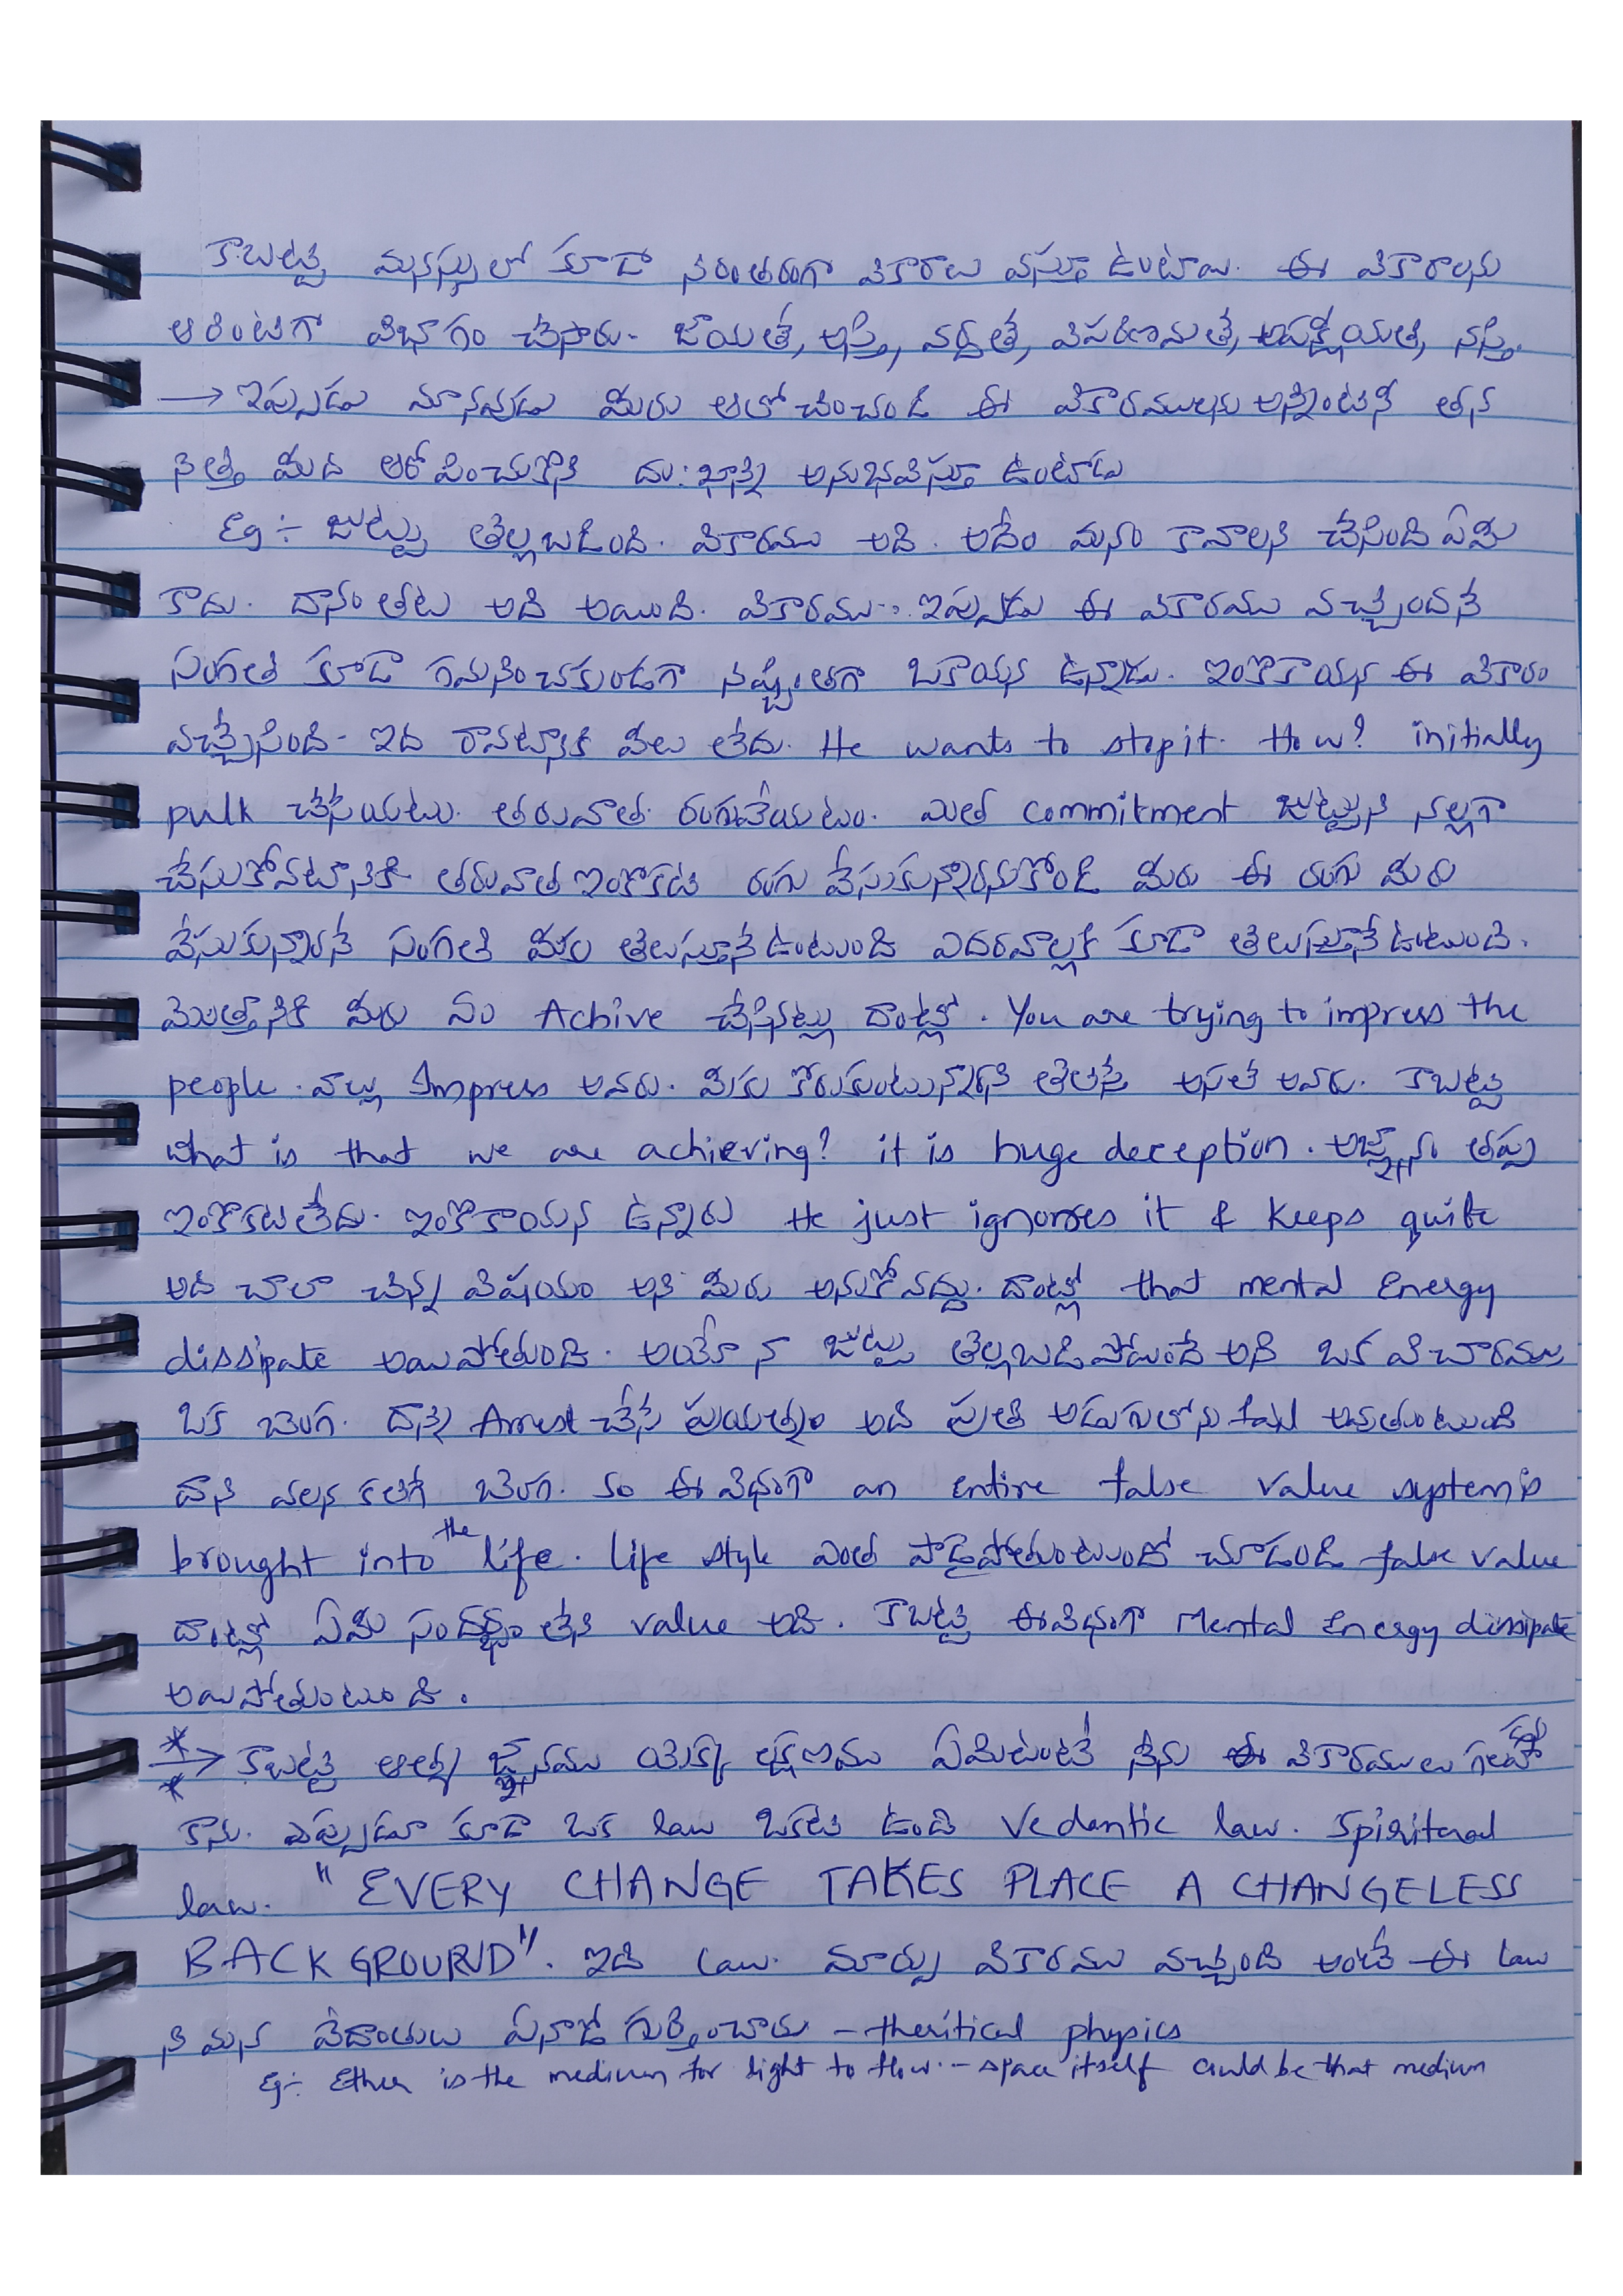 కాబట్టి మనస్సులో కూడా నిరంతరంగా వికారాలు వస్తూ ఉంటాయి. ఈ వికారాలను
ఆరింటిగా విభాగం చేసారు. జాయతే, అస్తి, వర్ధతే, విపరిణమతే, అపక్షీయతే, నస్తి.
→ ఇప్పుడు మానవుడు మీరు ఆలోచించండి ఈ వికారములను అన్నింటినీ తన
నెత్తి మీద ఆరోపించుకొని దు:ఖాన్ని అనుభవిస్తూ ఉంటాడు
Eg ÷ జుట్టు తెల్లబడింది. వికారము అది. అదేం మనం కావాలని చేసింది ఏమీ
కాదు. దానంతట అది అయింది. వికారము.. ఇప్పుడు ఈ వికారము వచ్చిందనే
సంగతి కూడా గమనించకుండగా నిశ్చింతగా ఒకాయన ఉన్నాడు. ఇంకొకాయన ఈ వికారం
వచ్చేసింది- ఇది రావటానికి వీలు లేదు. He wants to stop it. How? initially
pulk చేసేయటు. తరువాత రంగువేయటం. మిత commitment జుట్టుని నల్లగా
చేసుకోవటానికి తరువాత ఇంకొకటి రంగు వేసుకున్నారనుకోండి మీరు ఈ రంగు మీరు
వేసుకున్నారనే సంగతి మీకు తెలుస్తూనే ఉంటుంది ఎదరవాల్లకి కూడా తెలుస్తూనే ఉంటుంది.
మొత్తానికి మీరు ఏం Achive చేసినట్లు దాంట్లో. You are trying to impress the
people. వాల్లు Impress అవరు. మీరు కోరుకుంటున్నారని తెలిస్తే అసలే అవరు. కాబట్టి
what is that we are achieving? it is huge deception. అజ్ఞానం తప్ప
ఇంకొకటిలేదు. ఇంకొకాయన ఉన్నారు He just ignorses it & keeps quite
అది చాలా చిన్న విషయం అని మీరు అనుకోవద్దు. దాంట్లో that mental Energy
dissipate అయిపోతుంది. అయ్యో నా జుట్టు తెల్లబడిపోతుందే అని ఒక విచారము
ఒక బెంగ. దాన్ని Arrest చేసే ప్రయత్నం అది ప్రతి అడుగులోను fail అవుతుంటుంది
దాని వలన కలిగే బెంగ. so ఈ విధంగా an entire false value system is
brought into the life. life style ఎంత పాడైపోతుంటుందో చూడండి false value
దాంట్లో ఏమీ సందర్భం లేని value అది. కాబట్టి ఈవిధంగా Mental Energy dissipate
అయిపోతుంటుంది.
→ కాబట్టి ఆత్మ జ్ఞానము యొక్క లక్షణము ఏమిటంటే నేను ఈ వికారములు గలవాడను
కాను. ఎప్పుడూ కూడా ఒక law ఒకటి ఉంది Vedantic law. Spiritual
law. "EVERY CHANGE TAKES PLACE A CHANGELESS
BACKGROUND". ఇది law. మార్పు వికారము వచ్చింది అంటే ఈ law
ని మన వేదాంతులు ఏనాడో గుర్తించారు - theritical physics
Eg ÷ Ether is the medium for light to flow. - space itself could be that medium